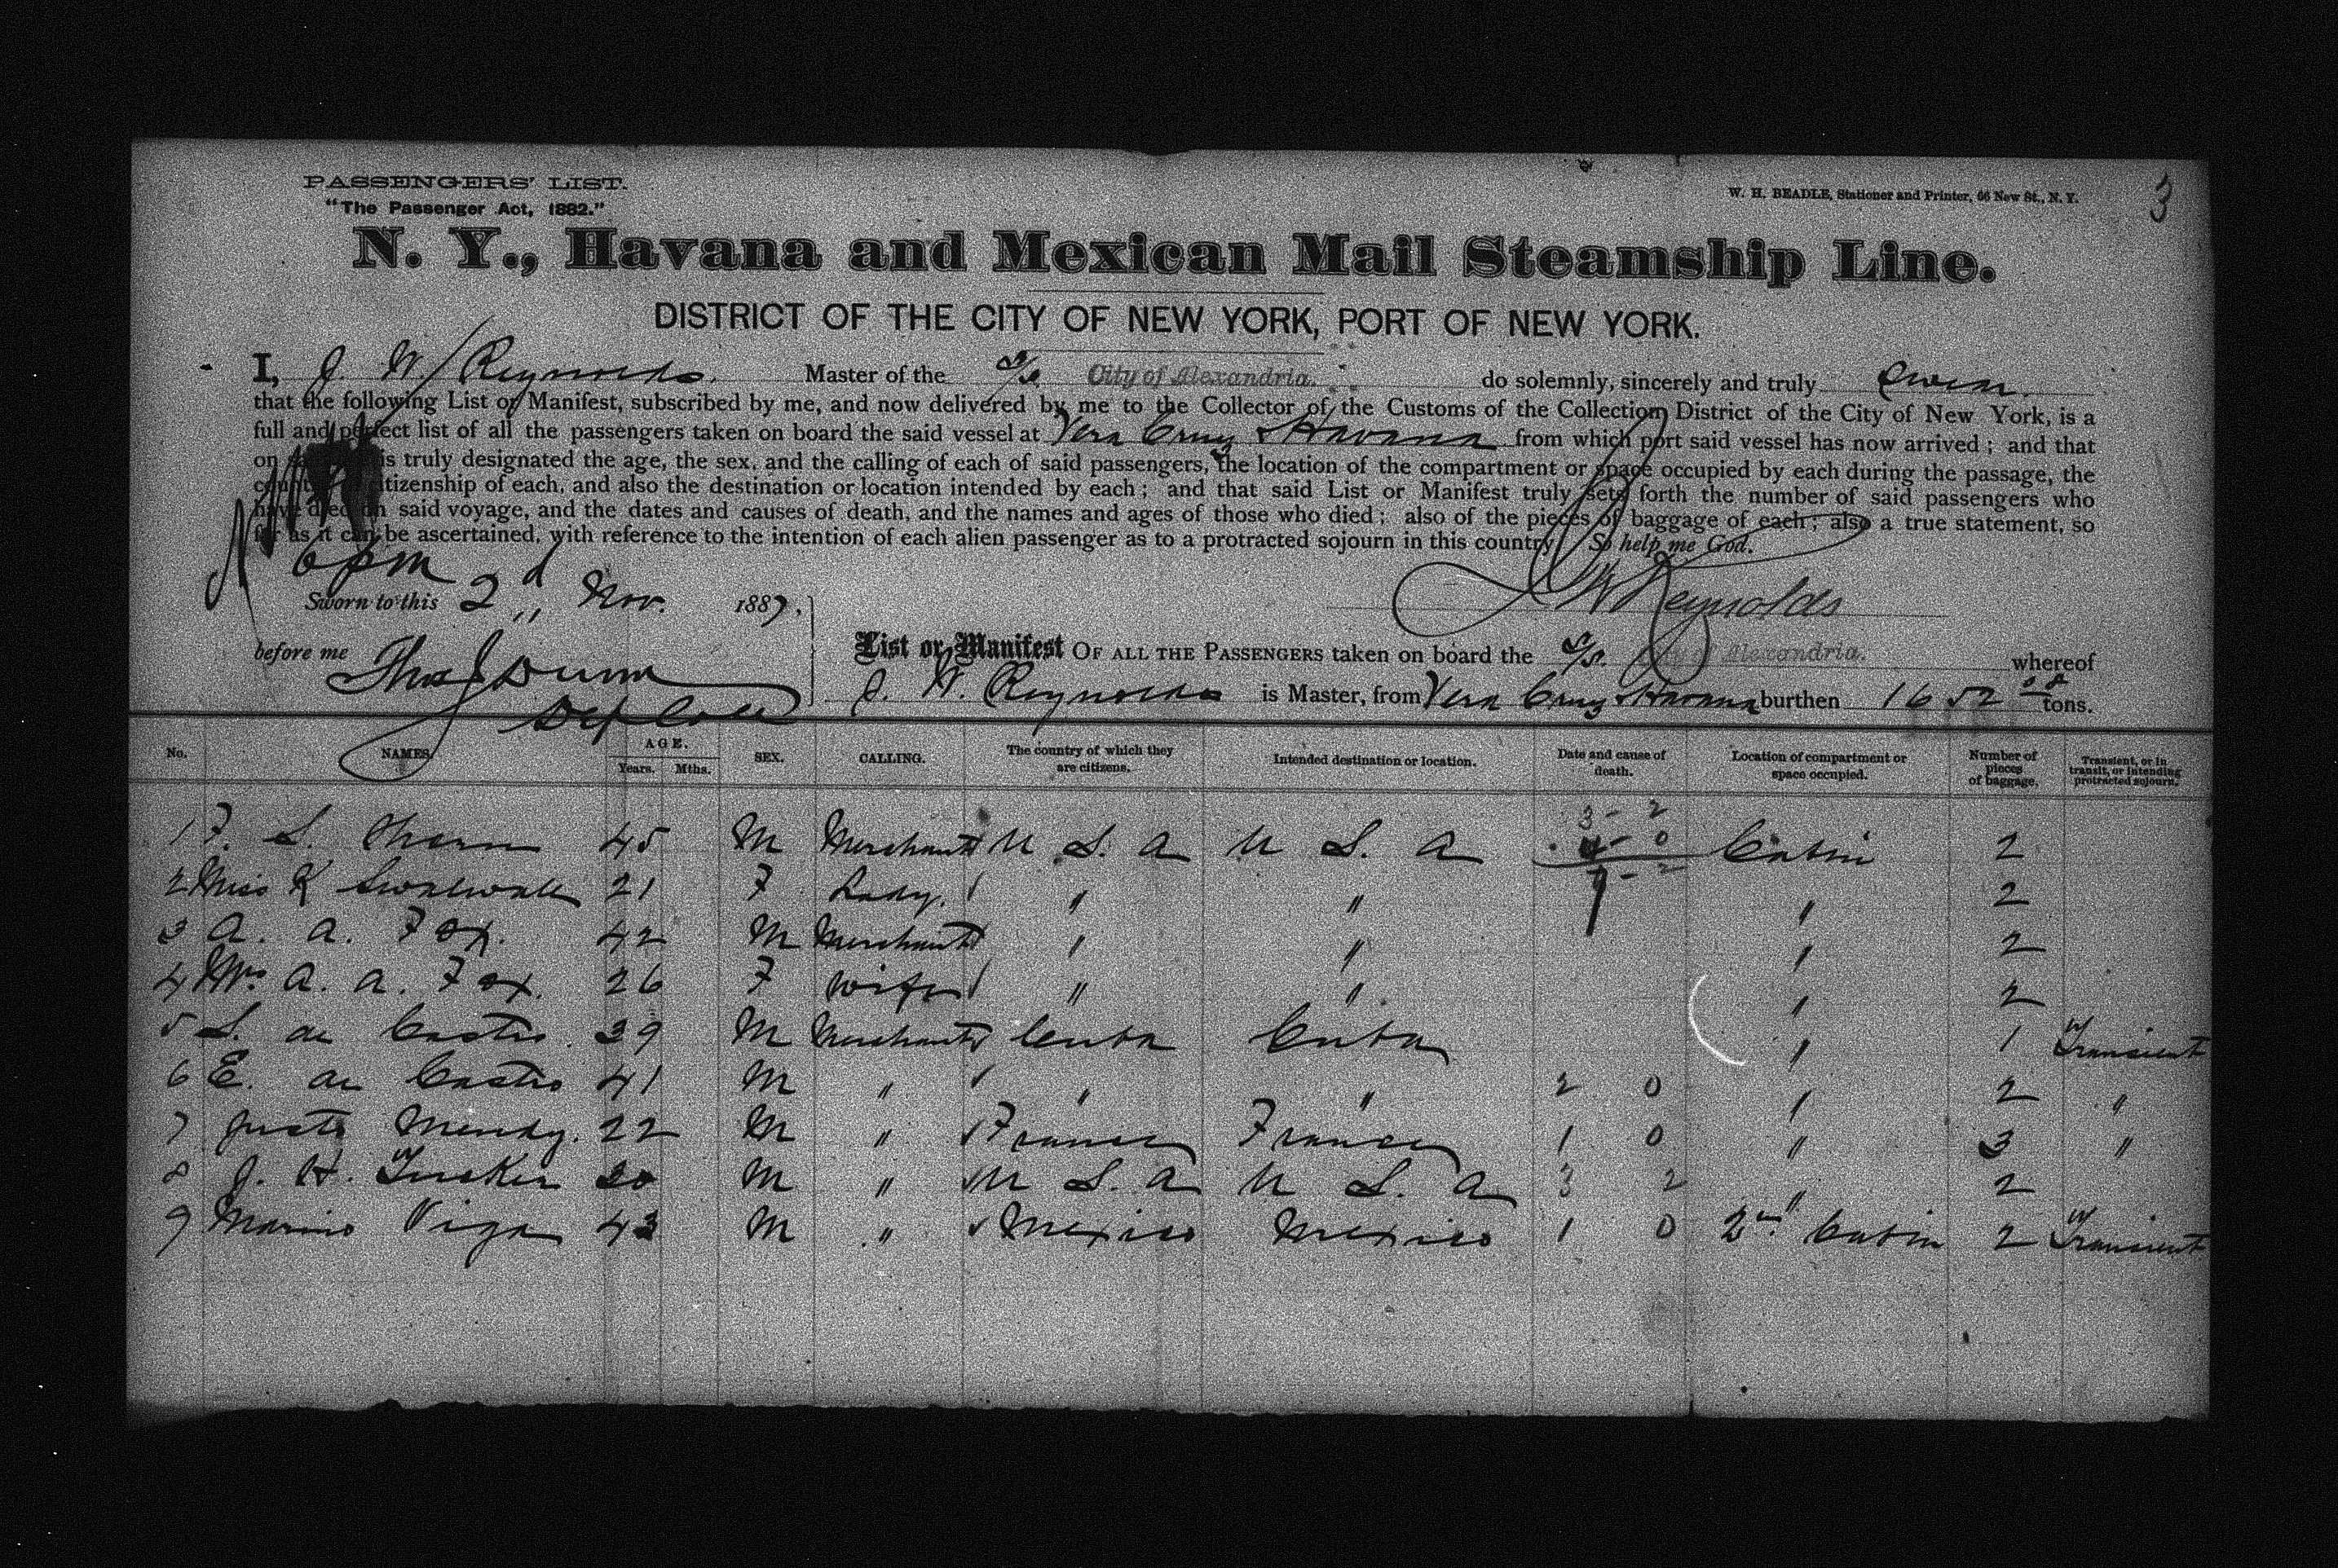 3
PASSENGERS' LIST.
"The Passenger Act, 1882."
W. H. BEADLE, Stationer and Printer, 66 New St., N. Y.
N. Y., Havana and Mexican Mail Steamship Line.
DISTRICT OF THE CITY OF NEW YORK, PORT OF NEW YORK.
I, J. W. Reynolds. Master of the S/S. City of Alexandria. do solemnly, sincerely and truly Swear
that the following List or Manifest, subscribed by me, and now delivered by me to the Collector of the Customs of the Collection District of the City of New York, is a
full and perfect list of all the passengers taken on board the said vessel at Vera Cruz & Havana from which port said vessel has now arrived; and that
on is truly designated the age, the sex, and the calling of each of said passengers, the location of the compartment or space occupied by each during the passage, the
citizenship of each, and also the destination or location intended by each; and that said List or Manifest truly sets forth the number of said passengers who
have died on said voyage, and the dates and causes of death, and the names and ages of those who died; also of the pieces of baggage of each; also a true statement, so
far as it can be ascertained, with reference to the intention of each alien passenger as to a protracted sojourn in this country. So help me God.
6 pm
Sworn to this 2d Nov. 1887,
J W Reynolds
before me Thos J Dunn
Dep Coll
List or Manifest OF ALL THE PASSENGERS taken on board the S/S. City of Alexandria. whereof
J. W. Reynolds is Master, from Vera Cruz & Havana burthen 1652 tons.
No. NAMES. AGE. Years. Mths. SEX. CALLING. The country of which they are citizens. Intended destination or location. Date and cause of death. Location of compartment or space occupied. Number of pieces of baggage. Transient, or in transit, or intending protracted sojourn.
3 - 2
1 F. S. Thorn 45 M Merchant U S. A U S. A 4 - 0 Cabin 2
2 Miss K 21 F Lady. " " 7 - 2 " 2
3 A. A. Fox. 42 M Merchant " " " 2
4 Mrs A. A. Fox. 26 F wife " " " 2
5 S. de Castro. 39 M Merchant Cuba Cuba " 1 Transient
6 E. de Castro 41 M " " " 2 0 " 2 "
7 Juste Mendy. 22 M " France France 1 0 " 3 "
8 J. H. Tucker 30 M " U S. A U S. A 3 2 " 2
9 Marino Viga 43 M " Mexico Mexico 1 0 2nd Cabin 2 Transient